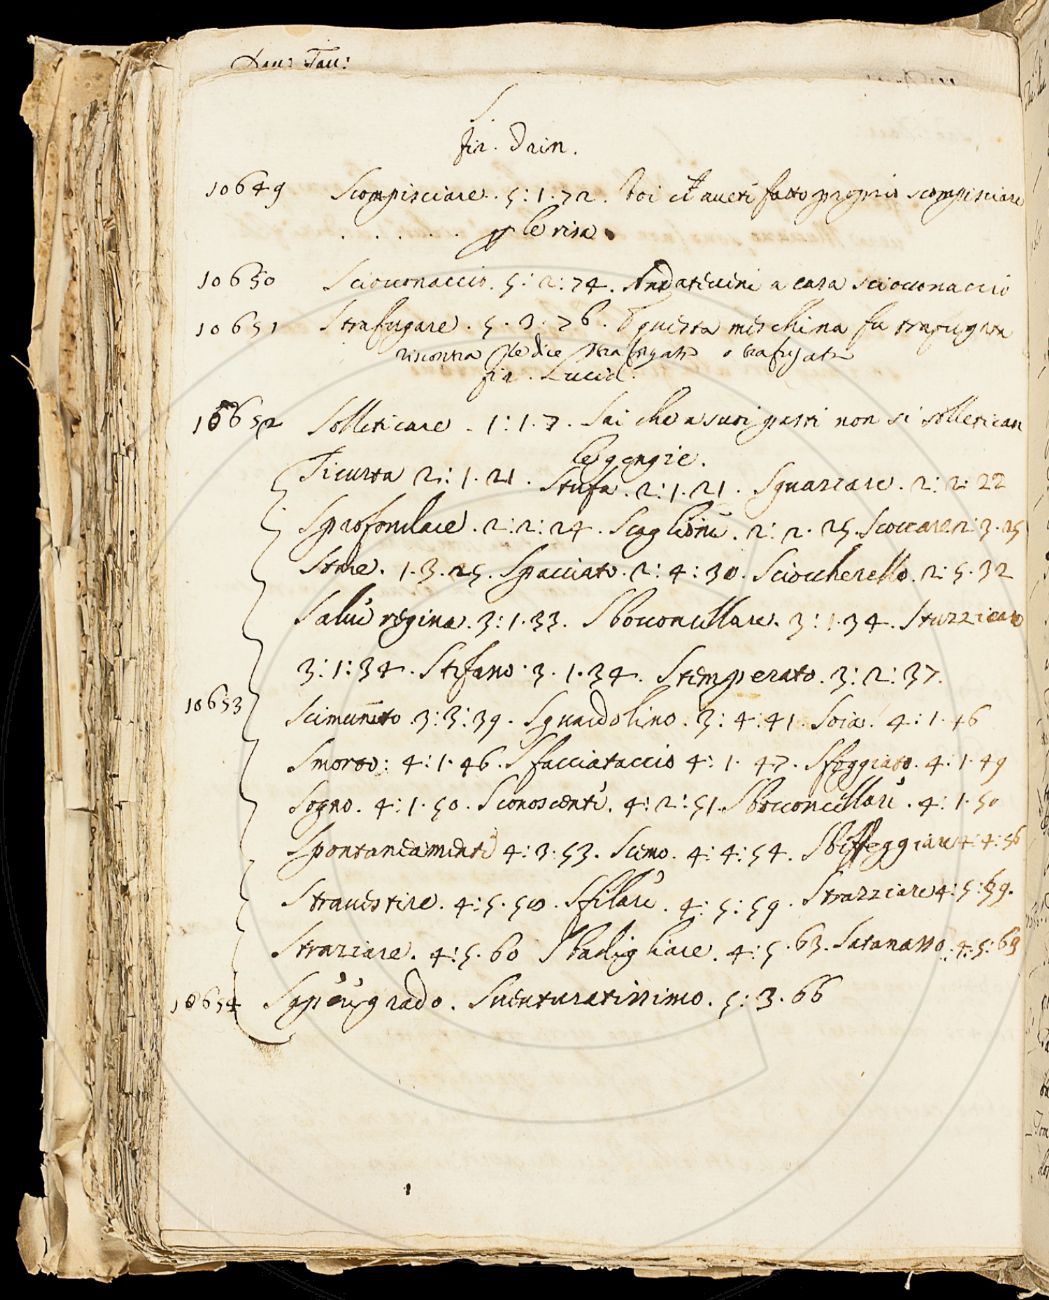 Dan: Tau:
S
fir. Drin.
10649 Scompisciare. 5:1.72. Voi ci aueti fatto proprio scompisciare
. . . . . p le risa.
10650 Scioconaccio. 5:2:74. Andativini a casa scioconaccio
10651 Strafugare. 5.3.76. E questa meschina fu
riscontra se dice strafugata o trafugata
fir. Lucid.
10652 Solleticare. 1:1.7. Sai che a suoi pasti non si solletican
le gengie.
Sicurta 2:1.21. Stufa. 2:1.21. Squarciare. 2:2:22
Sprofondare. 2:2:24. Scaglioni. 2:2.25. Scoccare. 2:3.25
Stare. 1.3.25. Spacciato. 2:4:30. Sciocherello. 2:5.32
Salue regina. 3:1.33. Sbocconcellare. 3:1.34. Stuzzicare
3:1:34. Stefano. 3.1.34. Stemperato. 3:2:37.
10653 Scimunito 3:3:39. Sguardolino. 3:4:41. Soia. 4:1.46
Smorto: 4:1.46. Sfacciataccio 4:1.47. Sfoggiato. 4.1.49
Sogno. 4:1.50. Sconoscenti. 4:2:51. Sbocconcellare. 4:1.50
Spontaneamenti 4:3.53. Scemo. 4:4:54. Sbeffeggiare 4:4:56
Strauestire. 4:5.58. Sfilare. 4:5:59. Strazziare 4:5:59.
Strazzare. 4:5.60 Sbadigliare. 4:5.63. Satanasso. 4:5:63
10654 Suenturatissimo. 5:3.66